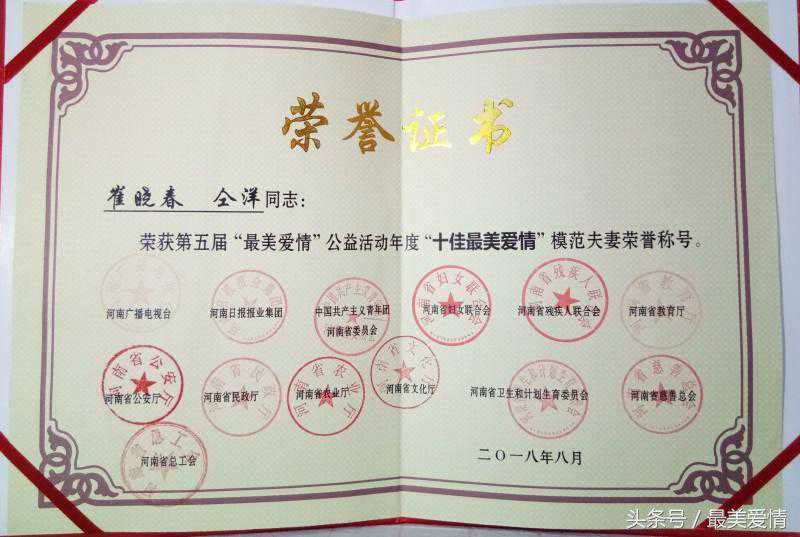 荣誉证书
崔晓春 仝洋同志：
荣获第五届“最美爱情”公益活动年度“十佳最美爱情”模范夫妻荣誉称号。
河南广播电视台 河南日报报业集团 中国共产主义青年团河南省委员会 河南省妇女联合会 河南省残疾人联合会 河南省教育厅
河南省公安厅 河南省民政厅 河南省农业厅 河南省文化厅 河南省卫生和计划生育委员会 河南省慈善总会
河南省总工会
二〇一八年八月
头条号 / 最美爱情